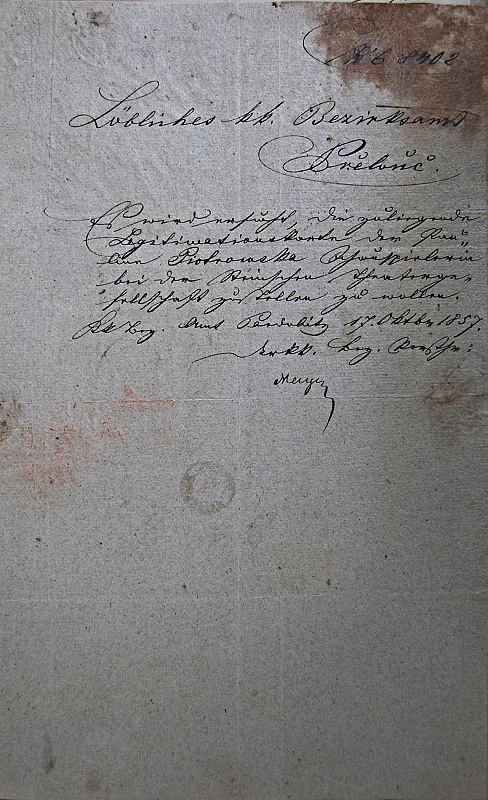 No 8402
Löbliches kk. Bezirksamt
Přelouč.
Es wird ersucht, die zuliegende
Legitimationskarte der Pau„
line Piotrowska Schauspielerin
bei der Theaterge„
sellschaft zustellen zu wollen.
KK Bez. Amt Pardubitz 17. Oktbr 1857.
Der kk. Bez. Vorsthr: